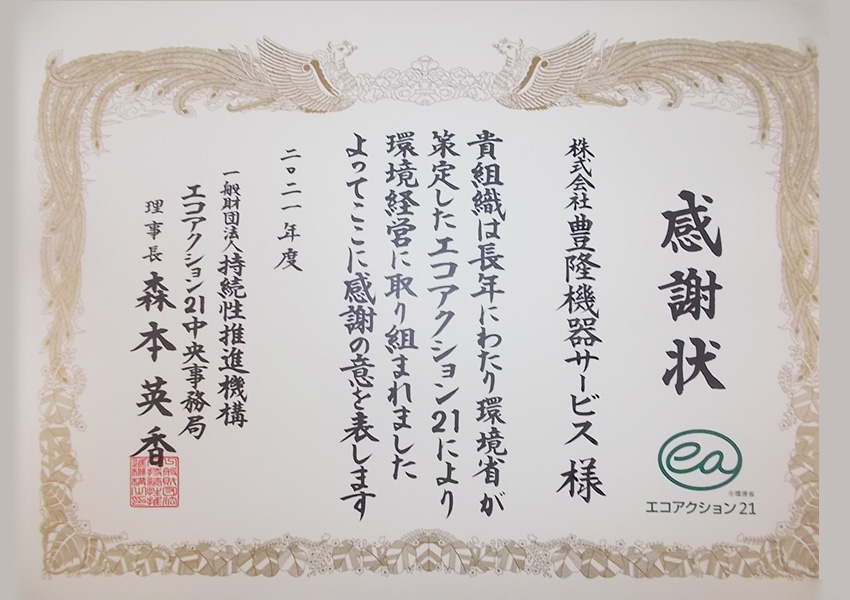 感謝状
ea
©環境省
エコアクション21
株式会社豊隆機器サービス 様
貴組織は長年にわたり環境省が
策定したエコアクション21により
環境経営に取り組まれました
よってここに感謝の意を表します
二〇二一年度
一般財団法人持続性推進機構
エコアクション21中央事務局
理事長 森本英香